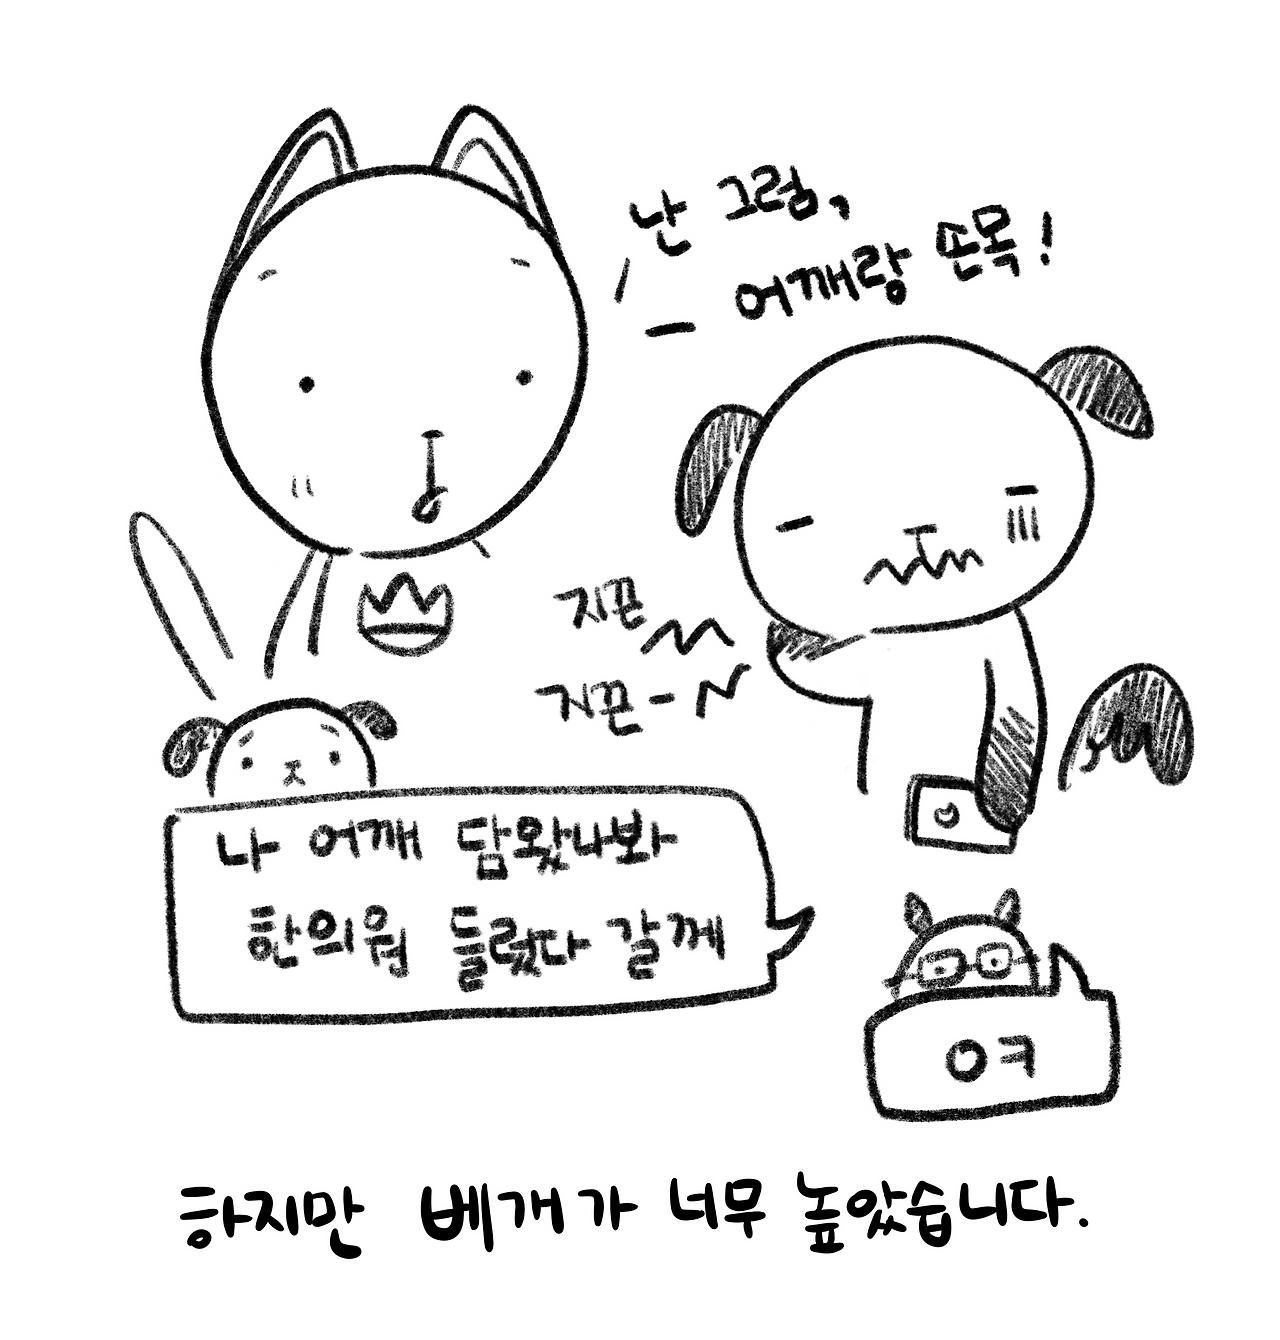 난 그럼,
어깨랑 손목!
지끈
지끈-
나 어깨 담왔나봐
한의원 들렀다 갈께
ㅇㅋ
하지만 베개가 너무 높았습니다.